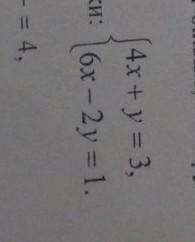 ки: { 4x + y = 3,
6x − 2y = 1.
= 4,